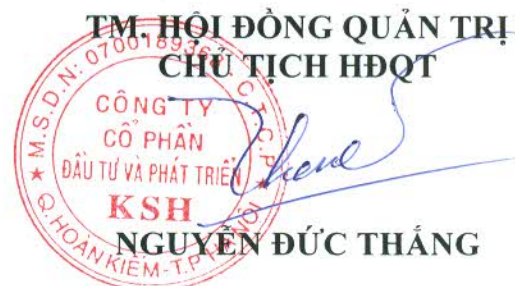 TM. HỘI ĐỒNG QUẢN TRỊ
CHỦ TỊCH HĐQT
M.S.D.N: 0700189368 - C.T.C.P
CÔNG TY
CỔ PHẦN
ĐẦU TƯ VÀ PHÁT TRIỂN
KSH
Q. HOÀN KIẾM - T.P HÀ NỘI
NGUYỄN ĐỨC THẮNG